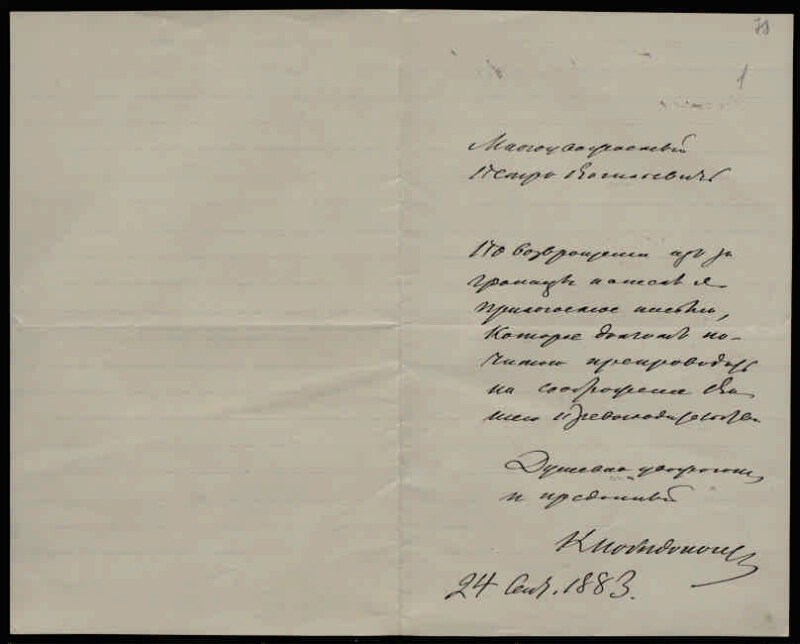 78
1
Многоуважаемый
Петръ
По возвращеніи изъ за
границы нашелъ я
приложенное письмо,
которое долгомъ по-
читаю препроводить
на соображеніе Ва
шего Превосходительства
Душевно уважающій
и преданный
К Победоносцев
24 Сент. 1883.